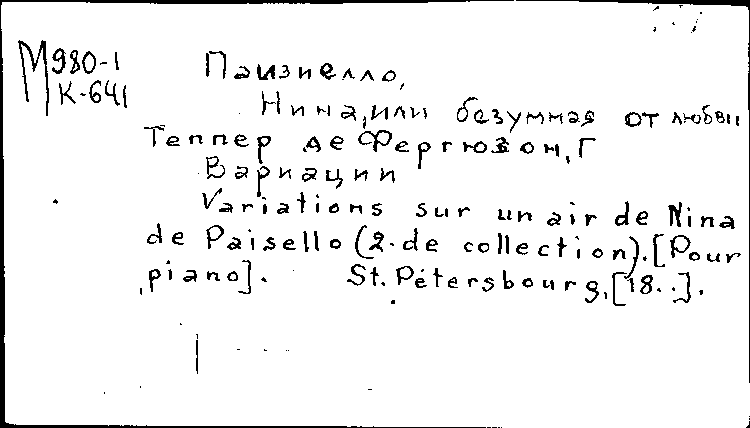 М980-1
К-641
Паизиелло,
Нина, или безумная от любви
Теппер де Фергюзон, Г
Вариации
Variations sur un air de Nina
de Paisello (2-de collection). [Pour
piano]. St. Pétersbourg, [18..].